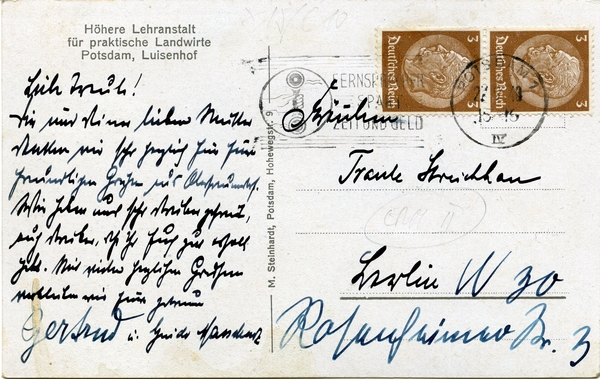 Höhere Lehranstalt
für praktische Landwirte
Potsdam, Luisenhof
Liebe Traute!
Dir und Deiner lieben Mutter
danken wir sehr herzlich für Eure
freundlichen Grüße aus
Wir haben uns sehr darüber gefreut,
auch darüber, daß Ihr Euch gut
habt. Mit vielen herzlichen Grüßen
verbleiben wir Eure getreuen
Gertrud u.
M. Steinhardt, Potsdam, Hohewegstr. 9
Deutsches Reich 3
Deutsches Reich 3
POTSDAM
FERNSPRECHER
SPART
ZEIT UND GELD
Fräulein
Traute
Berlin W 30
Rosenheimer Str. 3